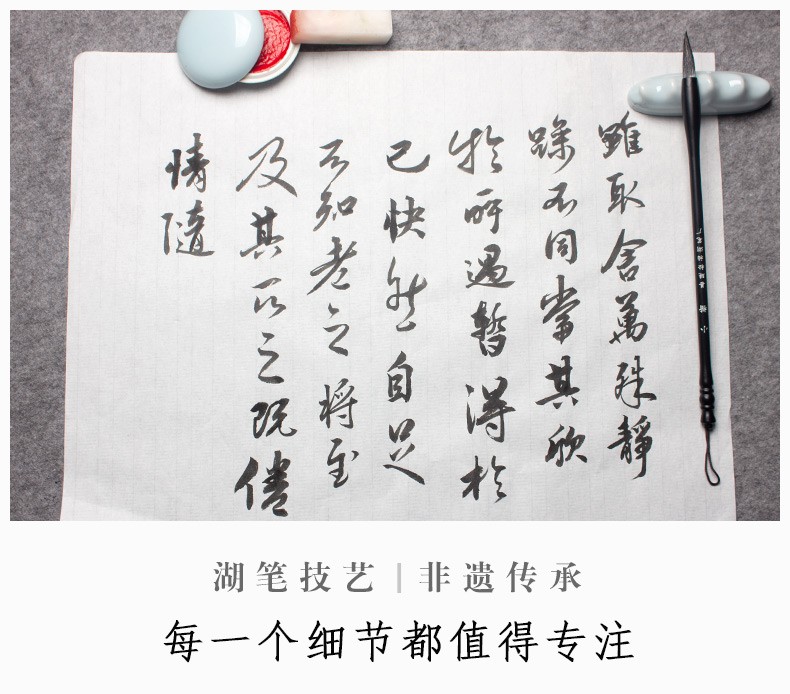 雖取舍萬殊靜
躁不同當其欣
於所遇暫得於
己快然自足
不知老之將至
及其所之既倦
情隨
湖笔技艺 | 非遗传承
每一个细节都值得专注